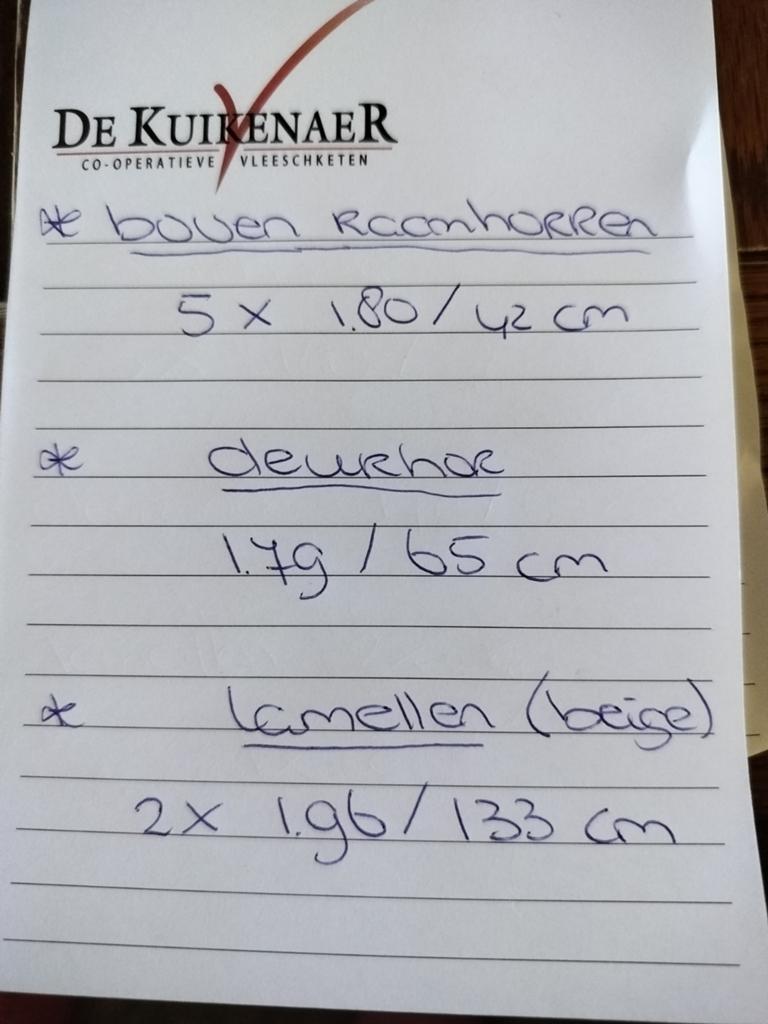 DE KUIKENAER
CO-OPERATIEVE VLEESCHKETEN
* boven Raamhorren
5 x 1.80 / 42 cm
* deurhor
1.79 / 65 cm
* lamellen (beige)
2x 1.96 / 133 cm